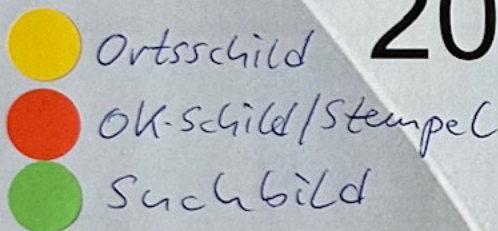 20
Ortsschild
OK-Schild/Stempel
Suchbild